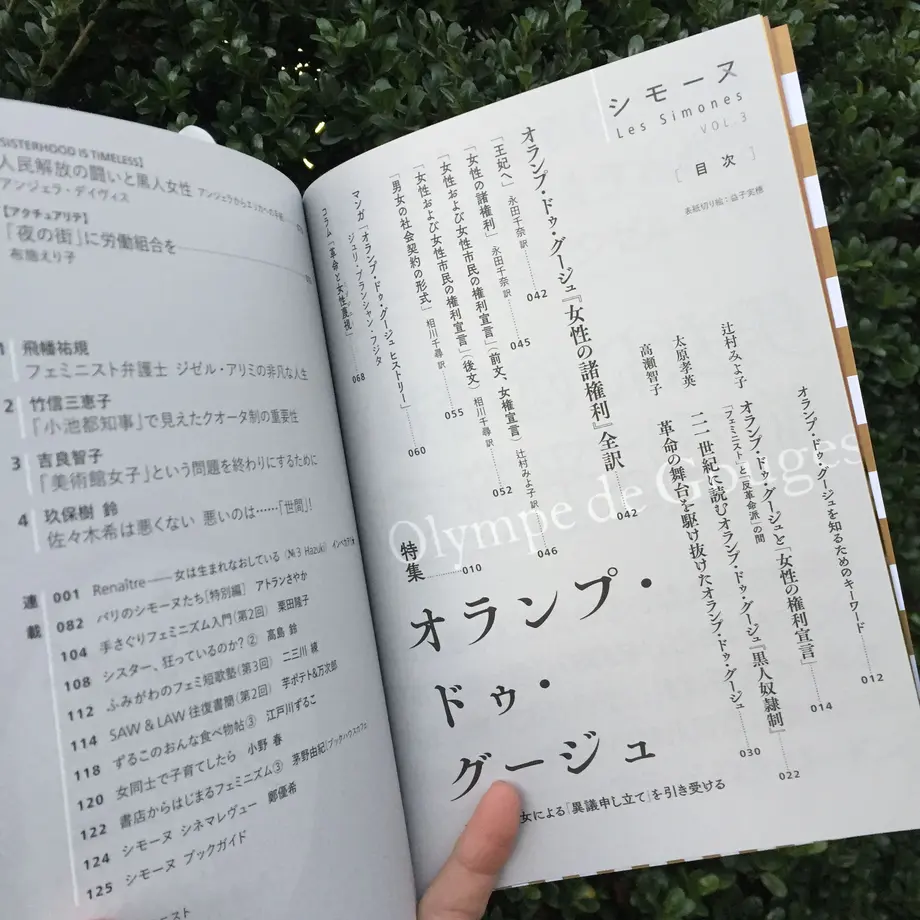 シモーヌ
Les Simones
VOL.3
[目次]
表紙切り絵：益子実穂
Olympe de Gouges
特集 010
オランプ・
ドゥ・
グージュ
女による『異議申し立て』を引き受ける
オランプ・ドゥ・グージュを知るためのキーワード 012
辻村みよ子 オランプ・ドゥ・グージュと「女性の権利宣言」 014
「フェミニスト」と「反革命派」の間
太原孝英 二一世紀に読むオランプ・ドゥ・グージュ『黒人奴隷制』 022
高瀬智子 革命の舞台を駆け抜けたオランプ・ドゥ・グージュ 030
オランプ・ドゥ・グージュ『女性の諸権利』全訳 042
「王妃へ」 永田千奈 訳 042
「女性の諸権利」 永田千奈 訳 045
「女性および女性市民の権利宣言」(前文、女権宣言) 辻村みよ子 訳 046
「女性および女性市民の権利宣言」(後文) 相川千尋 訳 052
「男女の社会契約の形式」 相川千尋 訳 055
マンガ「オランプ・ドゥ・グージュ ヒストリー」 060
ジュリ・ブランシャン・フジタ
コラム「革命と女性蔑視」 068
SISTERHOOD IS TIMELESS】
人民解放の闘いと黒人女性 アンジェラからエリカへの手紙
アンジェラ・デイヴィス
【アクチュアリテ】
「夜の街」に労働組合を
布施えり子
1 飛幡祐規
フェミニスト弁護士 ジゼル・アリミの非凡な人生
2 竹信三恵子
「小池都知事」で見えたクオータ制の重要性
3 吉良智子
「美術館女子」という問題を終わりにするために
4 玖保樹 鈴
佐々木希は悪くない 悪いのは……「世間」！
連載
001 Renaître——女は生まれなおしている (№3 Hazuki) インベカヲ
082 パリのシモーヌたち[特別編] アトランさやか
104 手さぐりフェミニズム入門(第2回) 栗田隆子
108 シスター、狂っているのか？② 高島 鈴
112 ふみがわのフェミ短歌塾(第3回) 二三川 練
114 SAW & LAW 往復書簡(第2回) 芋ポテト&万次郎
118 ずるこのおんな食べ物帖③ 江戸川ずるこ
120 女同士で子育てしたら 小野 春
122 書店からはじまるフェミニズム③ 茅野由紀(ブックハウスカフェ
124 シモーヌ シネマレヴュー 鄭優希
125 シモーヌ ブックガイド